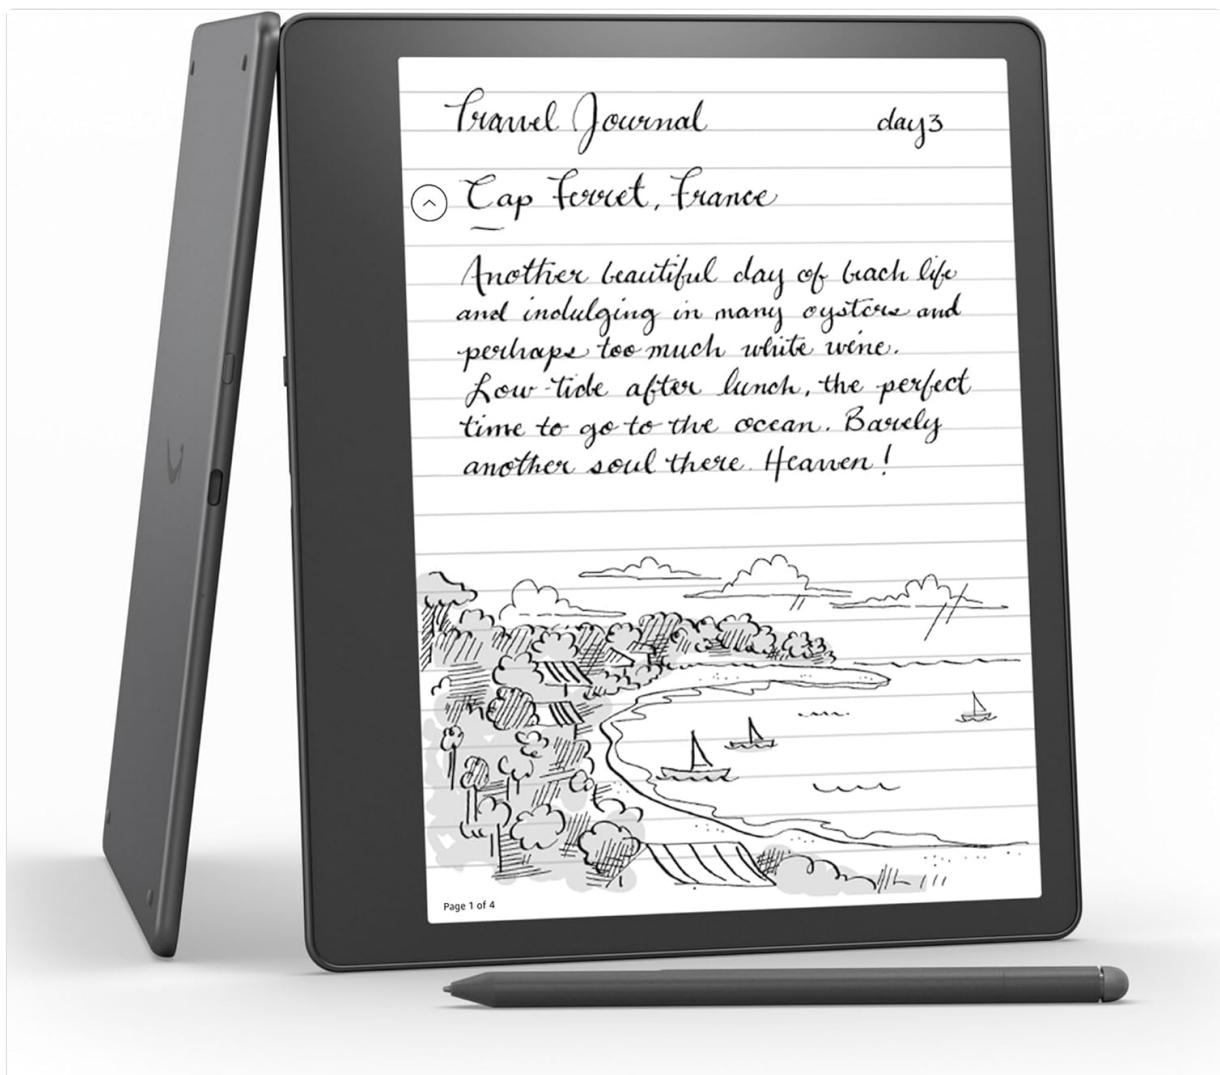 Travel Journal day 3
Cap Ferret, France
Another beautiful day of beach life
and indulging in many oysters and
perhaps too much white wine.
Low tide after lunch, the perfect
time to go to the ocean. Barely
another soul there. Heaven!
Page 1 of 4